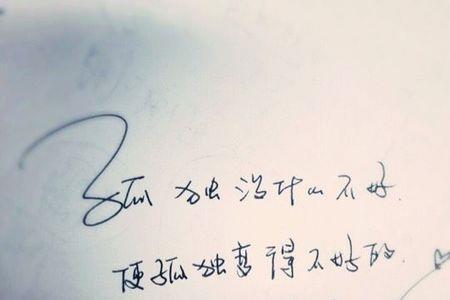 孤独没什么不好.
使孤独变得不好的.